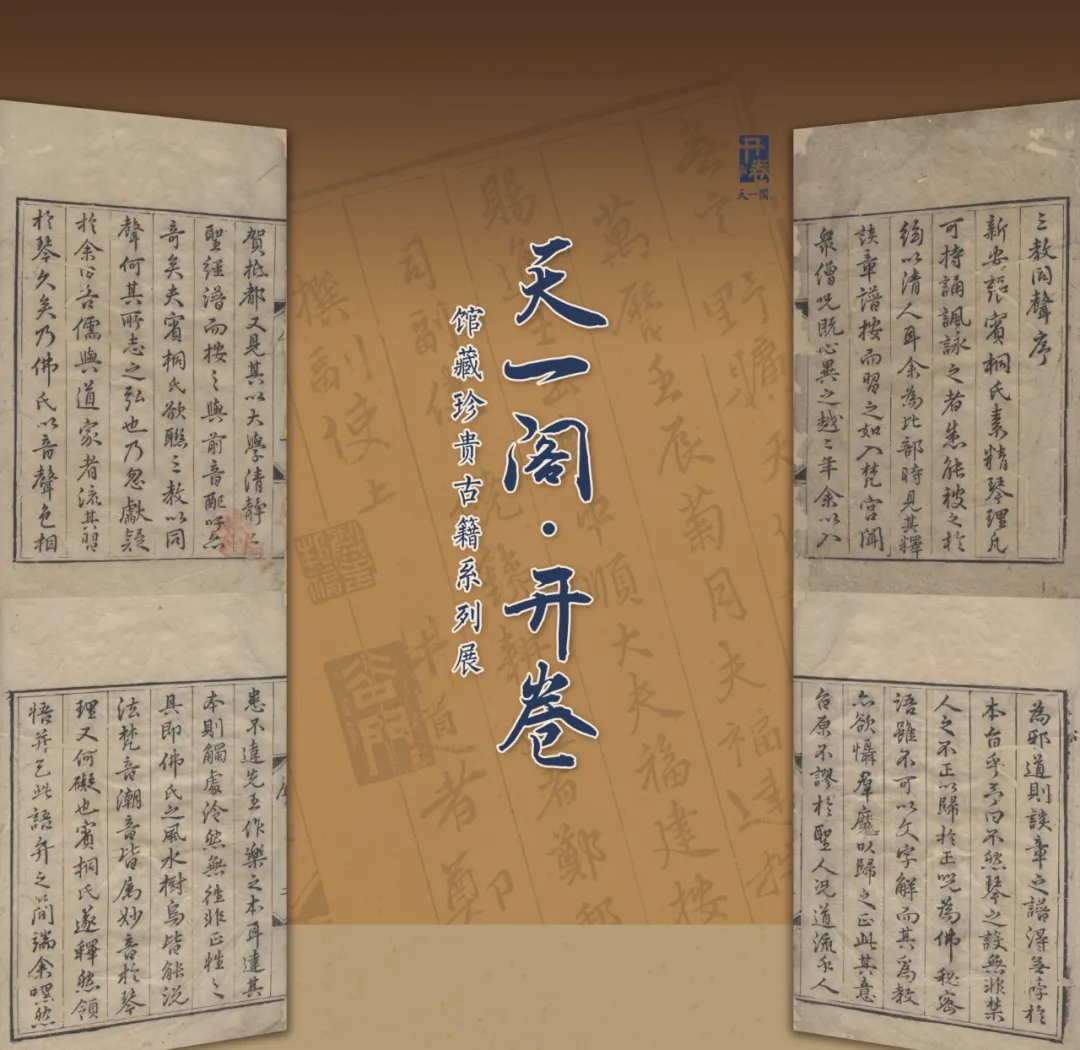 天一阁·开卷
馆藏珍贵古籍系列展
开卷
天一阁
三教同聲序
新安張賓桐氏素精琴理凡
可持誦諷詠之者悉能被之於
絃以清人耳余為比部時見其釋
談章譜按而習之如入梵宫聞
衆僧咒既心異之越二年余以入
賀抵都又見其以大學清靜二
聖經譜而按之與前音醂吁亦
奇矣夫賓桐氏欲聯三教以同
聲何其所志之弘也乃忽獻疑
於余曰吾儒與道家者流其習
於琴久矣乃佛氏以音聲色相
為邪道則談章之譜得無悖於
本旨乎予曰不然琴之設無非禁
人之不正以歸於正咒為佛秘密
語雖不可以文字解而其為教
亦欲懾羣魔以歸之正此其意
原不謬於聖人況道流乎人
患不達先王作樂之本耳達其
本則觸處泠然無往非正性之
具即佛氏之風水樹鳥皆能說
法梵音潮音皆属妙音於琴
理又何礙也賓桐氏遂釋然領
悟并乞此語弁之簡端余嘿然
萬曆壬辰菊月
中順大夫福建按
撰副使上